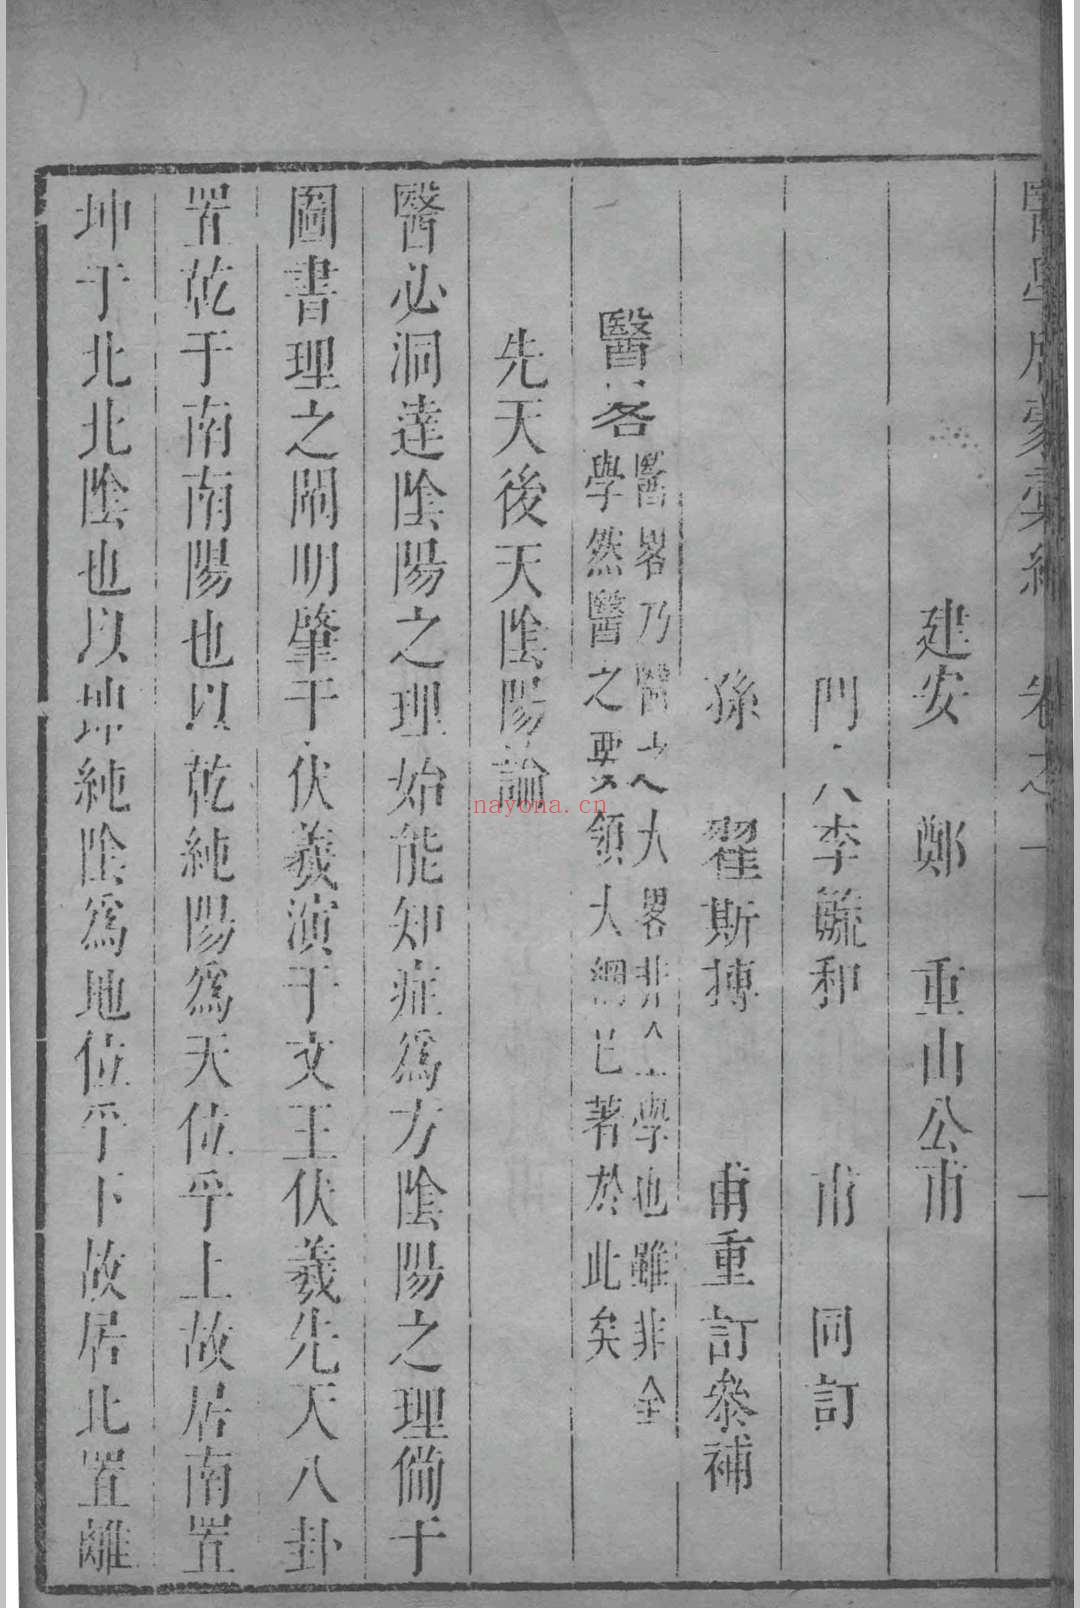 醫學廣蒙彙編 卷之一 一
建安 鄭 重山公甫
門人李毓和 甫 同訂
孫 翟斯摶 甫重訂叅補
醫畧醫畧乃醫之大畧非全學也雖非全
學然醫之要領大綱已著於此矣
先天後天陰陽論
醫必洞達陰陽之理始能知症為方陰陽之理倘于
圖書理之闡明肇于伏羲演于文王伏羲先天八卦
置乾于南南陽也以乾純陽為天位乎上故居南置
坤于北北陰也以坤純陰為地位乎下故居北置離
nayona.cn